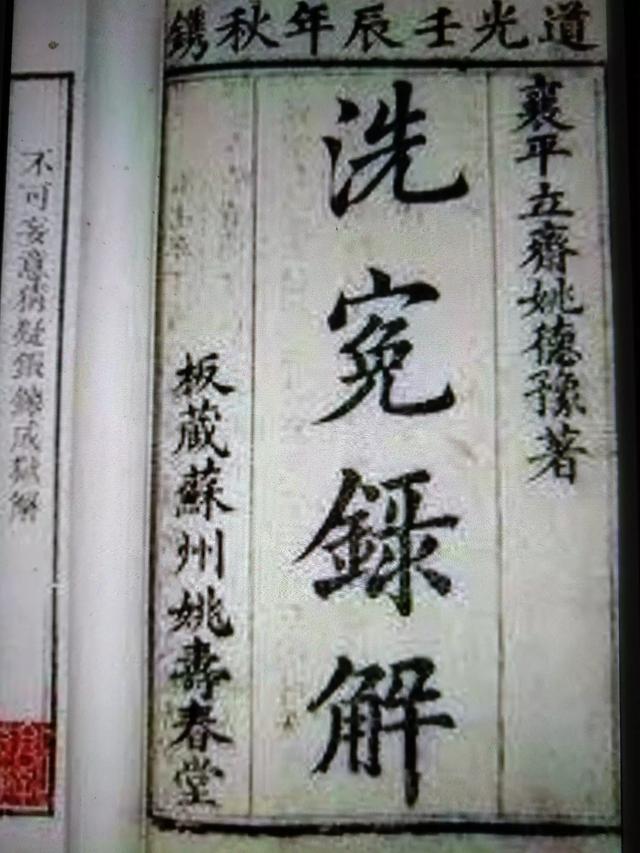 道光壬辰年秋鐫
襄平立齋姚德豫著
洗寃錄解
板藏蘇州姚壽春堂
不可妄意猜疑鍛鍊成獄解